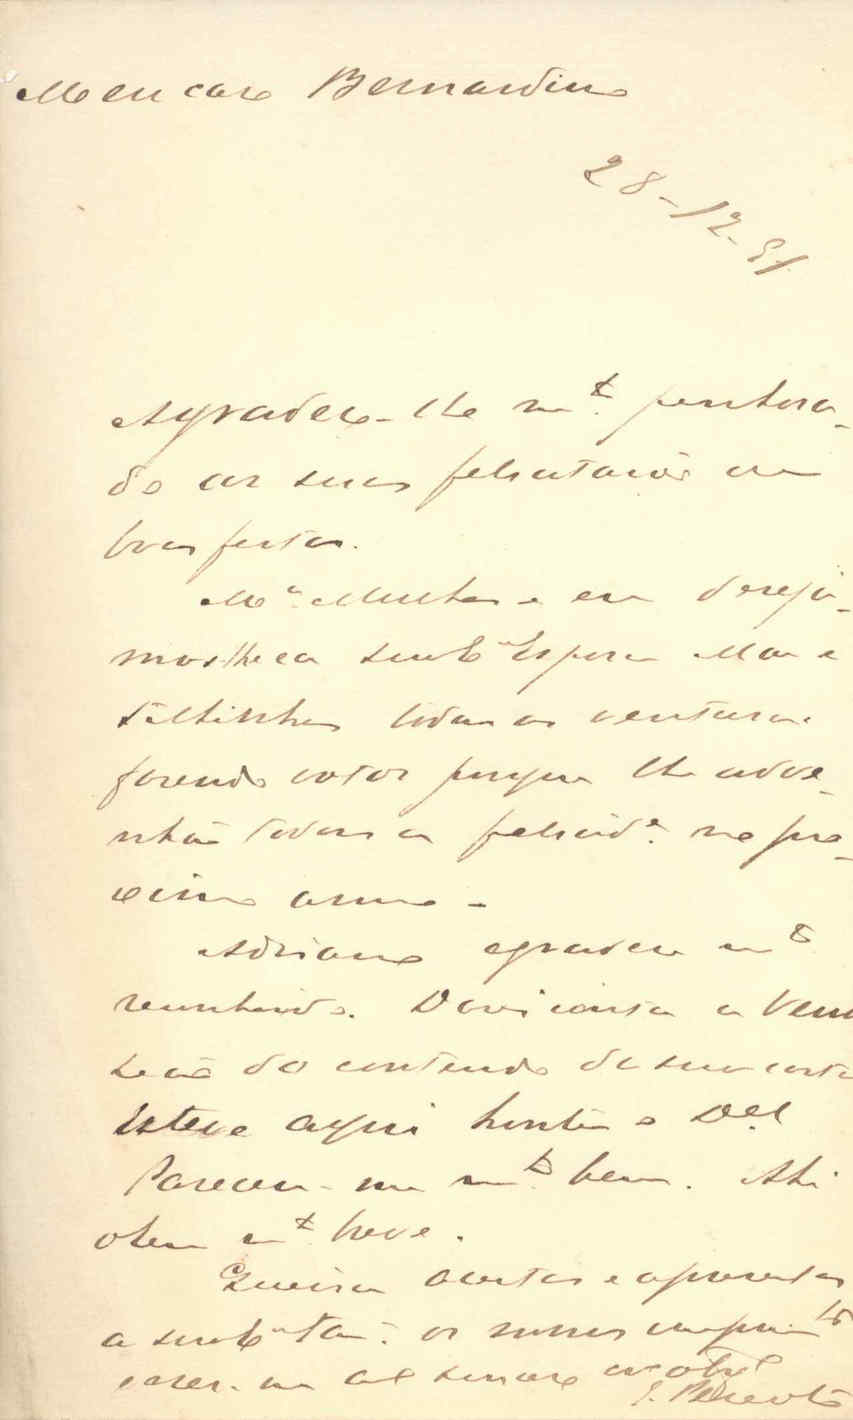 Meu caro Bernardino
28-12-91
Agradeço-lhe mto. penhora-
do as suas felicitações e
boas festas.
Ma. Mulher e eu deseja-
mos-lhe a Esposa Mãe e
Filhinhos todas as venturas
fazendo votos porque lhe adve-
nhão todas as felicide. no pro-
ximo anno -
Adriano agradece mto
reconhecido. Darei conta a
do contendo da sua carta
Esteve aqui hontem o Del
Pareceu-me mto. bem. Ahi
o tem mt breve.
Queira aceitar e apresentar
a os nossos cumprimtos
e crer-me